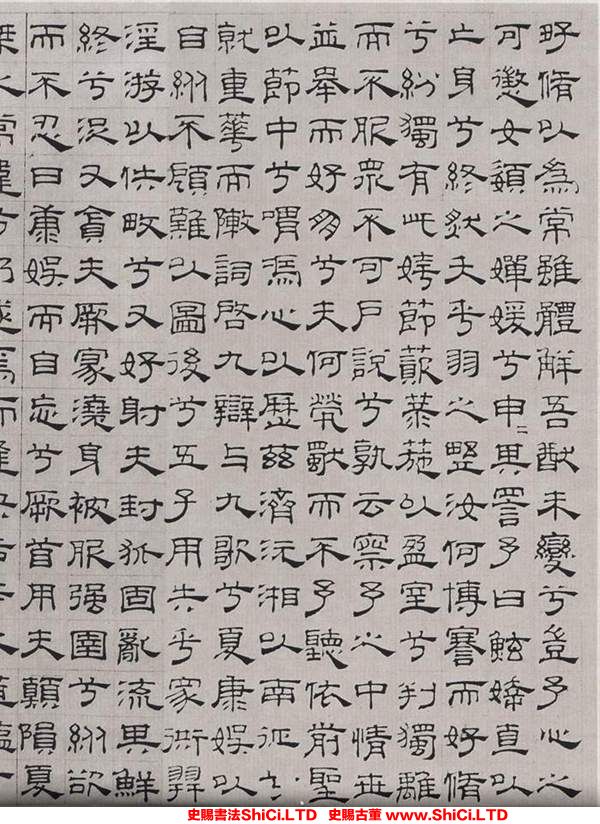 好脩以為常雖體解吾猶未變兮豈予心之
可懲女嬃之嬋媛兮申〻其詈予曰鮌婞直以
亡身兮終然夭乎羽之壄汝何博謇而好脩
兮紛獨有此姱節薋菉葹以盈室兮判獨離
而不服眾不可戶說兮孰云察予之中情世
並舉而好朋兮夫何煢獨而不予聽依前聖
以節中兮喟憑心以歷茲濟沅湘以南征兮
就重華而陳詞啓九辯与九歌兮夏康娛以
自縱不顧難以圖後兮五子用失乎家衖羿
淫游以佚畋兮又好射夫封狐固亂流其鮮
終兮浞又貪夫厥家澆身被服强圉兮縱欲
而不忍日康娛而自忘兮厥首用夫顛隕夏
桀之常違兮乃遂焉而逢
史賜書法ShiCi.LTD 史賜古董 www.ShiCi.LTD